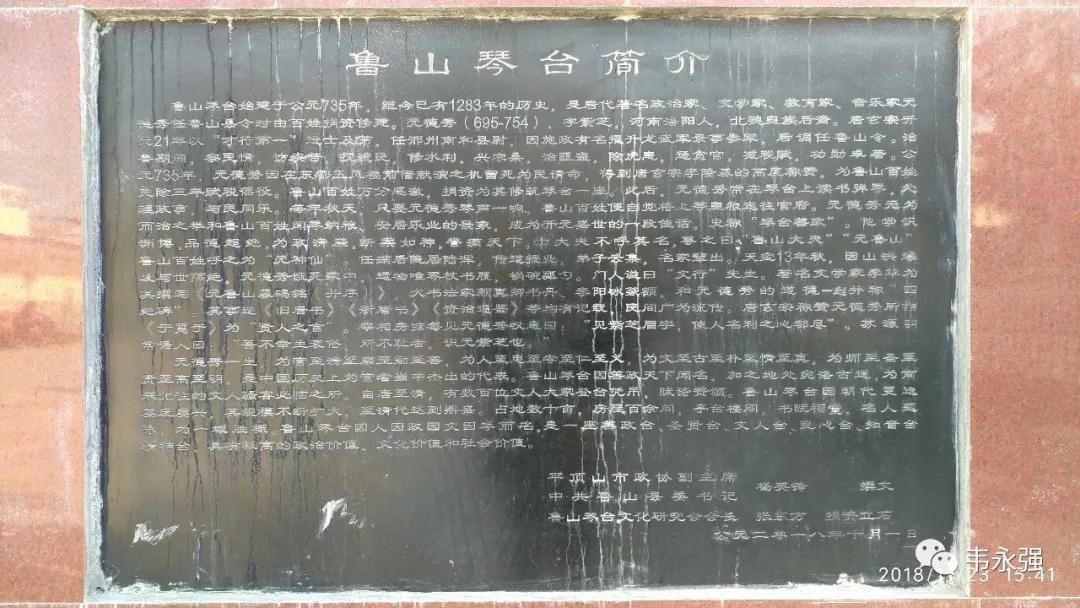 鲁山琴台简介
鲁山琴台始建于公元735年，距今已有1283年的历史，是唐代著名政治家、文学家、教育家、音乐家元
德秀任鲁山县令时由百姓捐资修建。元德秀（695-754），字紫芝，河南洛阳人，北魏皇族后裔。唐玄宗开
元21年以"才行第一"进士及第，任邢州南和县尉，因施政有名擢升龙武军录事参军，后调任鲁山令。治
鲁期间，察民情，访疾苦，抚流民，修水利，兴农桑，治匪盗，除虎患，惩贪官，减税赋，功勋卓著。公
元735年，元德秀因在东都五凤楼前借献演之机冒死为民请命，得到唐玄宗李隆基的高度称赞，为鲁山百姓
免除三年赋税徭役。鲁山百姓万分感激，捐资为其修筑琴台一座。此后，元德秀常在琴台上读书弹琴，处
理政事，与民同乐。每年秋天，只要元德秀琴声一响，鲁山百姓便自觉将上等枣和送往官府。元德秀无为
而治之举和鲁山百姓闻琴纳税、安居乐业的景象，成为开元盛世的一段佳话，史称"琴台善政"。他学识
渊博，品德超绝，为政清廉，断案如神，誉满天下，士大夫不呼其名，尊之曰"鲁山大夫""元鲁山"
鲁山百姓呼之为"元神仙"。任满后隐居陆浑，传道授业，弟子云集，名家辈出。天宝13年秋，因山洪爆
发与世隔，元德秀饿死家中，遗物唯琴枕书履，锅碗瓢勺，门人谥曰"文行"先生。著名文学家李华为
其撰《元鲁山墓碣铭，并序》，大书法家颜真卿书丹，李阳冰篆额，和元德秀的道德一起并称"四
绝碑"。其事迹《旧唐书》《新唐书》《资治通鉴》等均有记载，民间广为流传。唐玄宗称赞元德秀所作
《于蒍于》为"贤人之言"。宰相房琯每见元德秀叹息曰："见紫芝眉宇，使人名利之心都尽"。苏源明
常语人曰："吾不幸生衰俗，所不耻者，识元紫芝也。"
元德秀一生，为官至清至廉至勤至善，为人至忠至孝至仁至义，为文至古至朴至情至真，为师至圣至
贤至高至明，是中国历史上为官者当中杰出的代表。鲁山琴台因善政天下闻名，加之地处宛洛古道，为南
来北往的文人骚客必临之所。自唐至清，有数百位文人大家登台凭吊，脉诸赞颂。鲁山琴台因朝代更迭
至庆废兴，其规模不断扩大，至清代达到鼎盛，占地数十亩，房屋百余间，亭台楼阁，书院祠堂，名人题
，为一城胜概。鲁山琴台因人因政因文因琴而名，是一座善政台、圣贤台、文人台、良心台、知音台
、和台，具有极高的政治价值、文化价值和社会价值。
平顶山市政协副主席
中共鲁山县委书记 杨英锋 撰文
鲁山琴台文化研究会会长 张东方 捐资立石
公元二零一八年十月一日
韦永强
2018/ 23 15:41